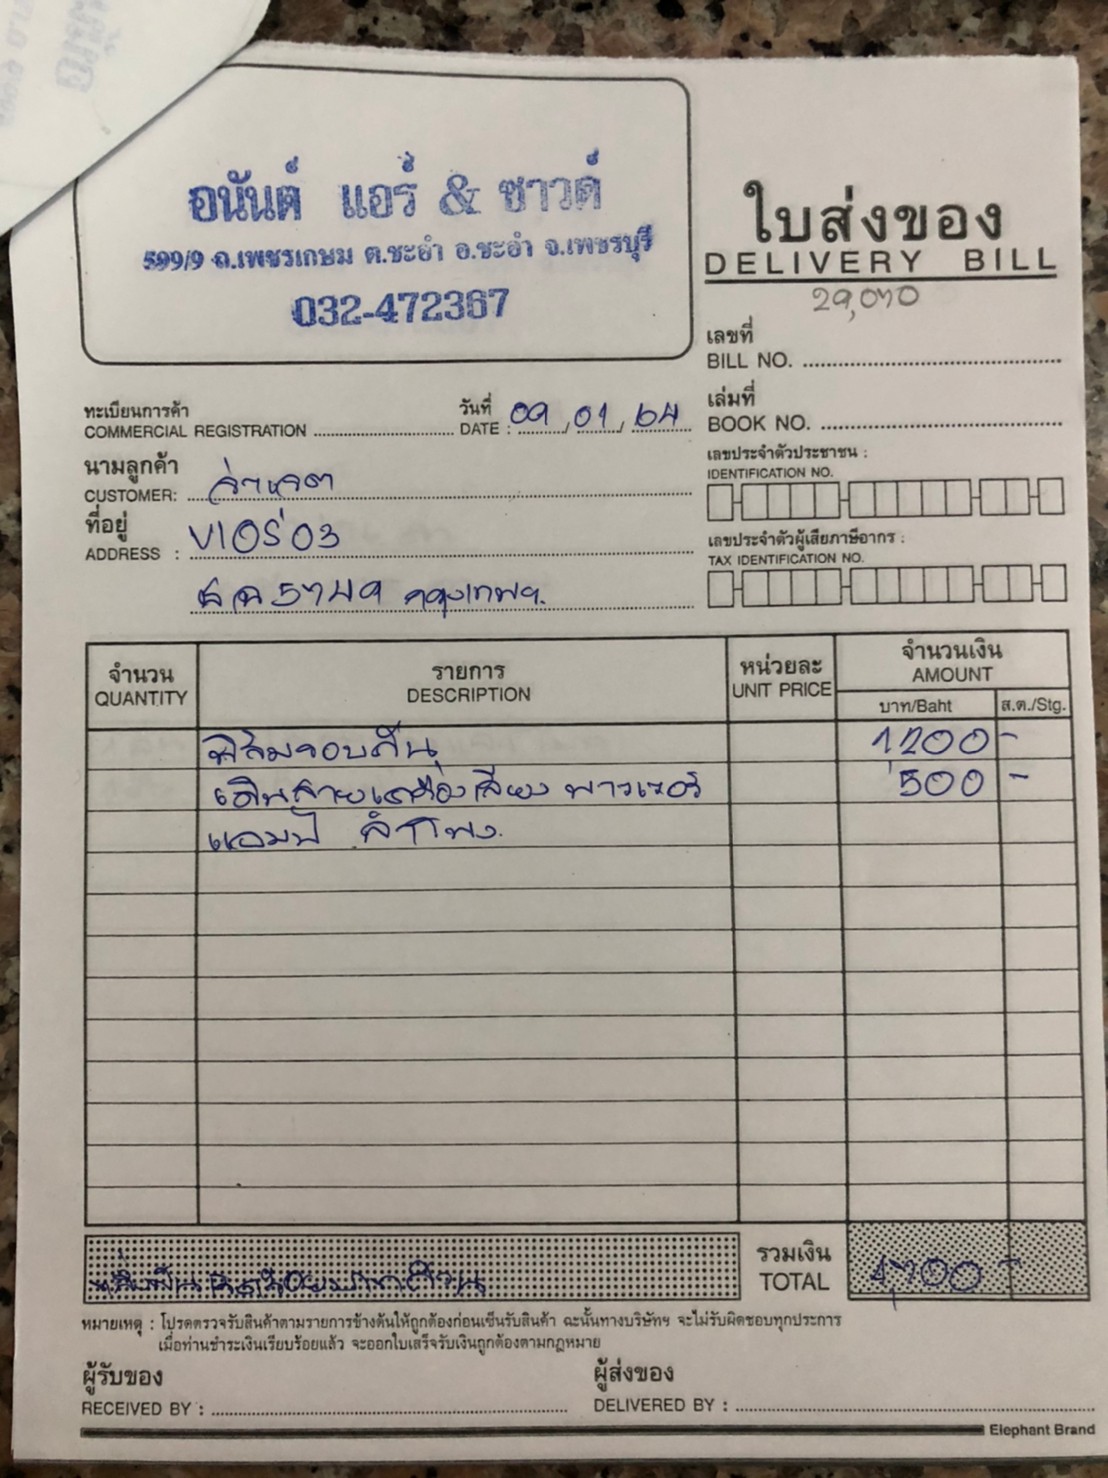 อนันต์ แอร์ & ซาวด์
599/9 ถ.เพชรเกษม ต.ชะอำ อ.ชะอำ จ.เพชรบุรี
032-472367
ใบส่งของ
DELIVERY BILL
29,070
เลขที่
BILL NO.
ทะเบียนการค้า
COMMERCIAL REGISTRATION
วันที่ 09, 01, 64
DATE :
เล่มที่
BOOK NO.
นามลูกค้า
CUSTOMER:
เลขประจำตัวประชาชน :
IDENTIFICATION NO.
ที่อยู่
ADDRESS : VIOS 03
กรุงเทพฯ.
เลขประจำตัวผู้เสียภาษีอากร :
TAX IDENTIFICATION NO.
จำนวน
QUANTITY
รายการ
DESCRIPTION
หน่วยละ
UNIT PRICE
จำนวนเงิน
AMOUNT
บาท/Baht
ส.ต./Stg.
ฟิล์มรอบคัน 1,200 -
เดินสายเครื่องเสียง พาวเวอร์ 500 -
แอมป์ ลำโพง.
รวมเงิน
TOTAL 1,700 -
หมายเหตุ : โปรดตรวจรับสินค้าตามรายการข้างต้นให้ถูกต้องก่อนเซ็นรับสินค้า ฉะนั้นทางบริษัทฯ จะไม่รับผิดชอบทุกประการ
เมื่อท่านชำระเงินเรียบร้อยแล้ว จะออกใบเสร็จรับเงินถูกต้องตามกฎหมาย
ผู้รับของ
RECEIVED BY :
ผู้ส่งของ
DELIVERED BY :
Elephant Brand